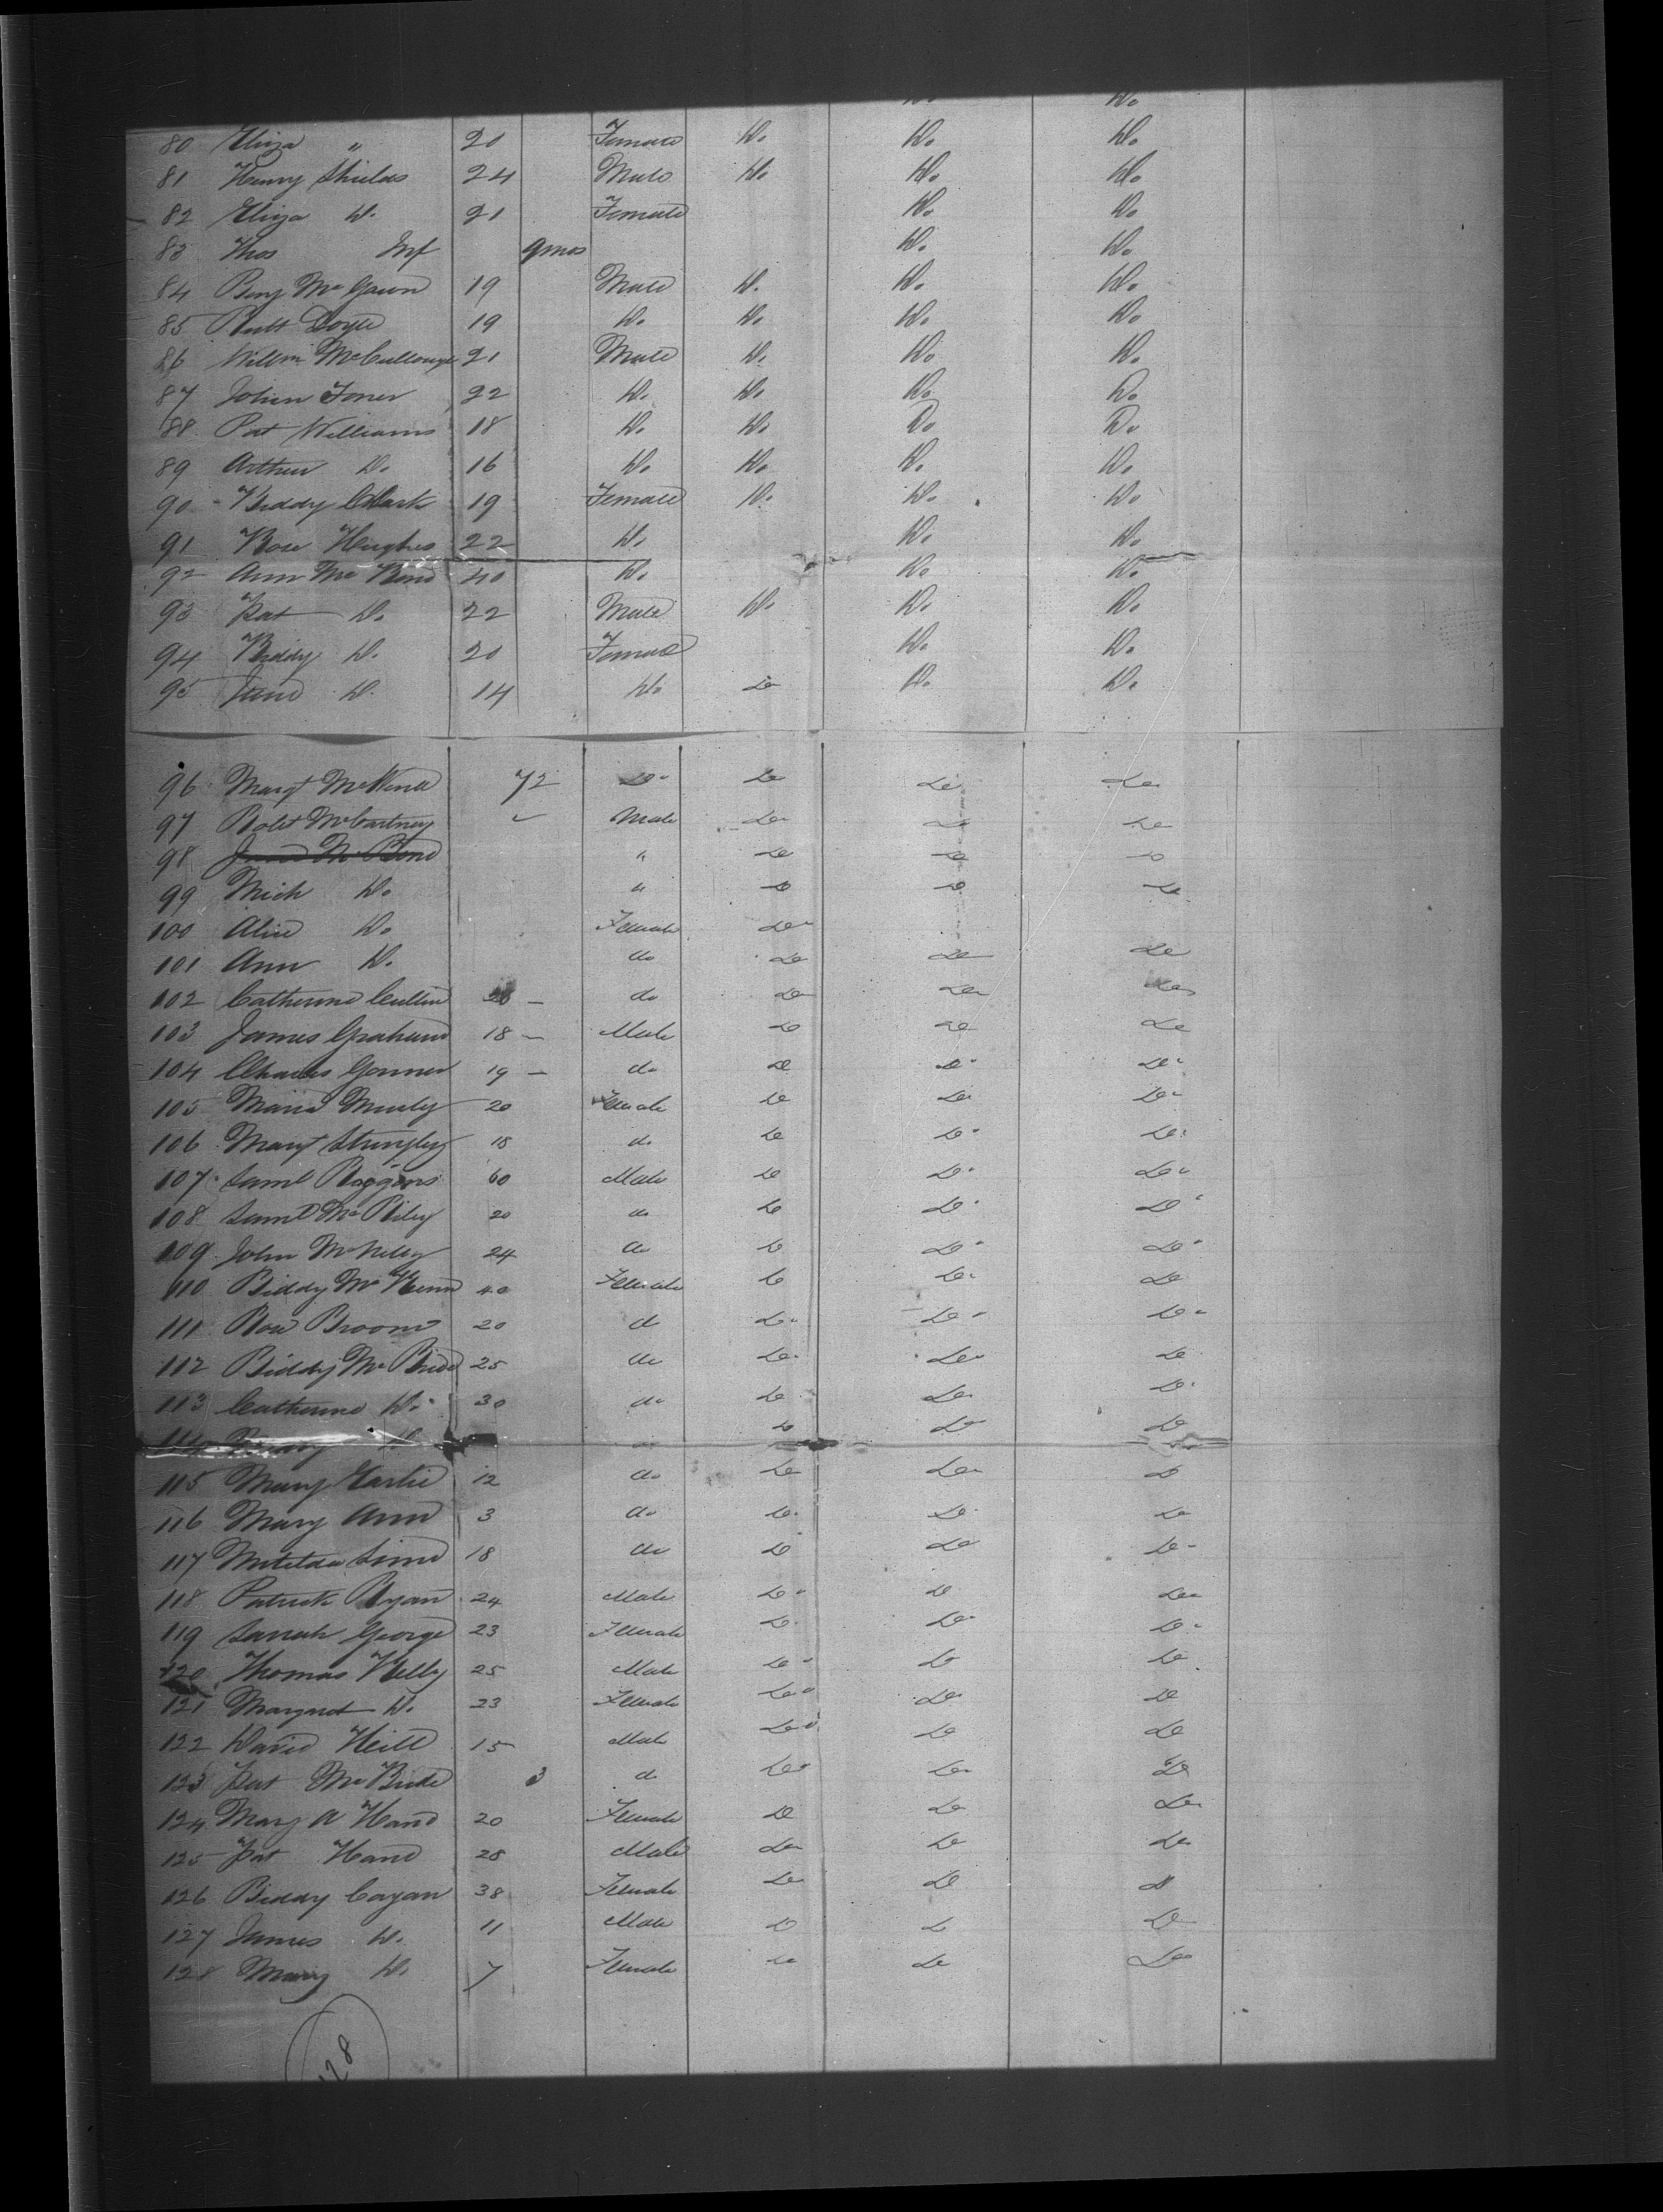 Do Do
80 Eliza " 20 Female Do Do Do
81 Henry Shields 24 Male Do Do Do
82 Eliza Do 21 Female Do Do
83 Thos Inf 9 mos Do Do
84 Benj McGawn 19 Male Do Do Do
85 Doyle 19 Do Do Do Do
86 Willm McCullough 21 Male Do Do Do
87 John Toner 22 Do Do Do Do
88 Pat Williams 18 Do Do Do Do
89 Arthur Do 16 Do Do Do Do
90 Biddy Clark 19 Female Do Do Do
91 Rose Hughes 22 Do Do Do
92 Ann Mc 40 Do Do Do
93 Pat Do 22 Male Do Do Do
94 Biddy Do 20 Female Do Do
95 Jane Do 14 Do Do Do Do
96 Margt McKena 72 Do Do Do Do
97 Robt McCartney Male Do Do Do
98 " Do Do Do
99 Mich Do " Do Do Do
100 Alice Do Female Do
101 Ann Do do Do Do Do
102 Catherine Cullen do Do Do Do
103 James Graham 18 Male Do Do Do
104 Charles 19 do Do Do Do
105 Maria 20 Female Do Do Do
106 Margt 18 do Do Do Do
107 Saml 60 Male Do Do Do
108 Saml McRiley 20 do Do Do Do
109 John 24 do Do Do Do
110 Biddy McKenna 40 Female Do Do Do
111 Rose Broom 20 do Do Do Do
112 Biddy McBride 25 do Do Do Do
113 Catherine Do 30 do Do Do Do
114 Do Do Do Do
115 Mary 12 do Do Do Do
116 Mary Ann 3 do Do Do Do
117 Matilda 18 do Do Do Do
118 Patrick Ryan 24 Male Do Do Do
119 Sarah George 23 Female Do Do Do
120 Thomas Kelly 25 Male Do Do Do
121 Margret Do 23 Female Do Do Do
122 David Neill 15 Male Do Do Do
123 Pat McBride 3 do Do Do Do
124 Mary A Hand 20 Female Do Do Do
125 Pat Hand 28 Male Do Do Do
126 Biddy Cagan 38 Female Do Do Do
127 James Do 11 Male Do Do Do
128 Mary Do 7 Female Do Do Do
128